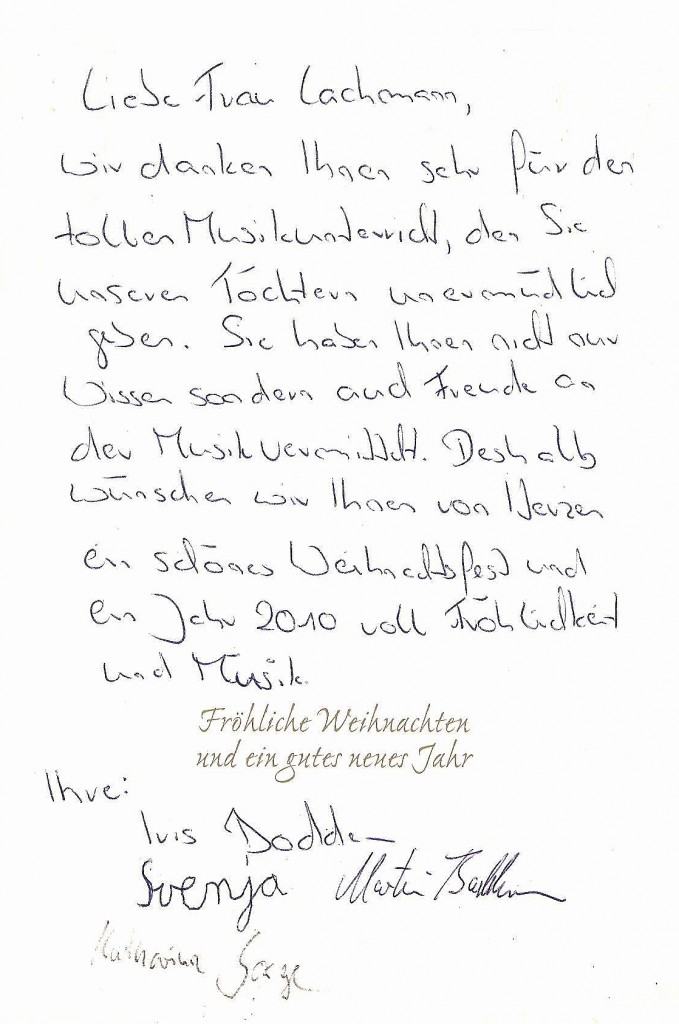 Liebe Frau Lachmann,
wir danken Ihnen sehr für den
tollen Musikunterricht, den Sie
unseren Töchtern unermüdlich
geben. Sie haben Ihnen nicht nur
Wissen sondern auch Freude an
der Musik vermittelt. Deshalb
wünschen wir Ihnen von Herzen
ein schönes Weihnachtsfest und
ein Jahr 2010 voll Fröhlichkeit
und Musik.
Fröhliche Weihnachten
und ein gutes neues Jahr
Ihre:
Iris
Svenja Martin
Katharina